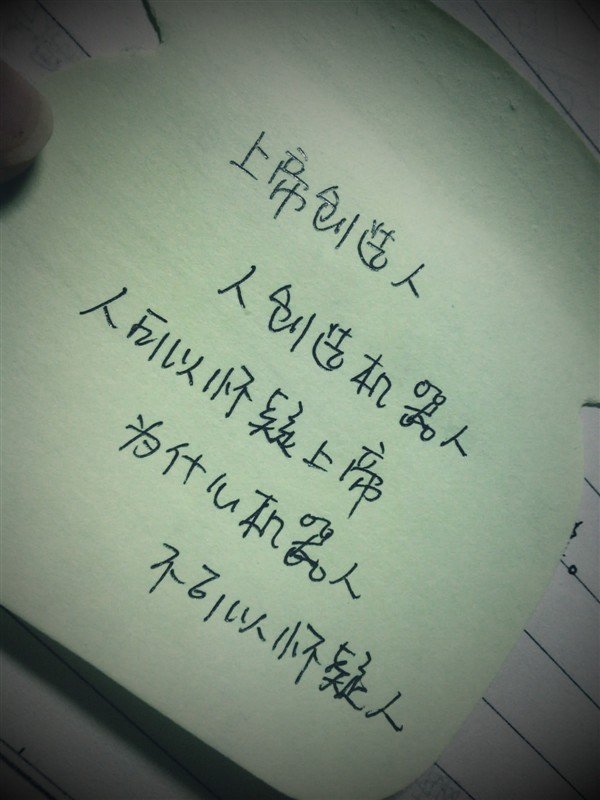 上帝创造人
人创造机器人
人可以怀疑上帝
为什么机器人
不可以怀疑人